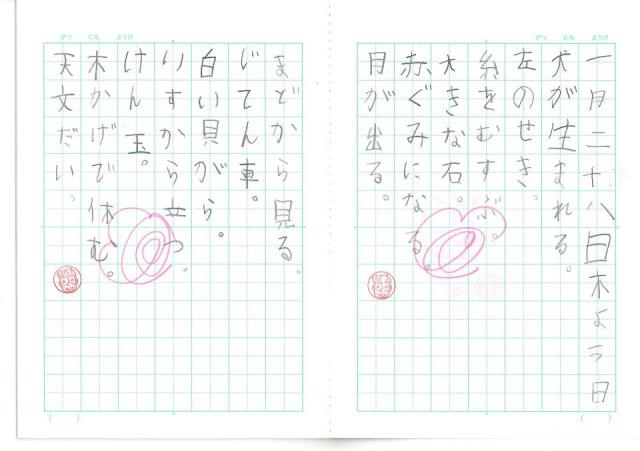 がつ にち ようび
一月二十八日木よう日
犬が生まれる。
左のせき。
糸をむすぶ。
大きな石。
赤ぐみになる。
月が出る。
がつ にち ようび
まどから見る。
じてん車。
白い貝がら。
いすから立つ。
けん玉。
木かげで休む。
天文だい。